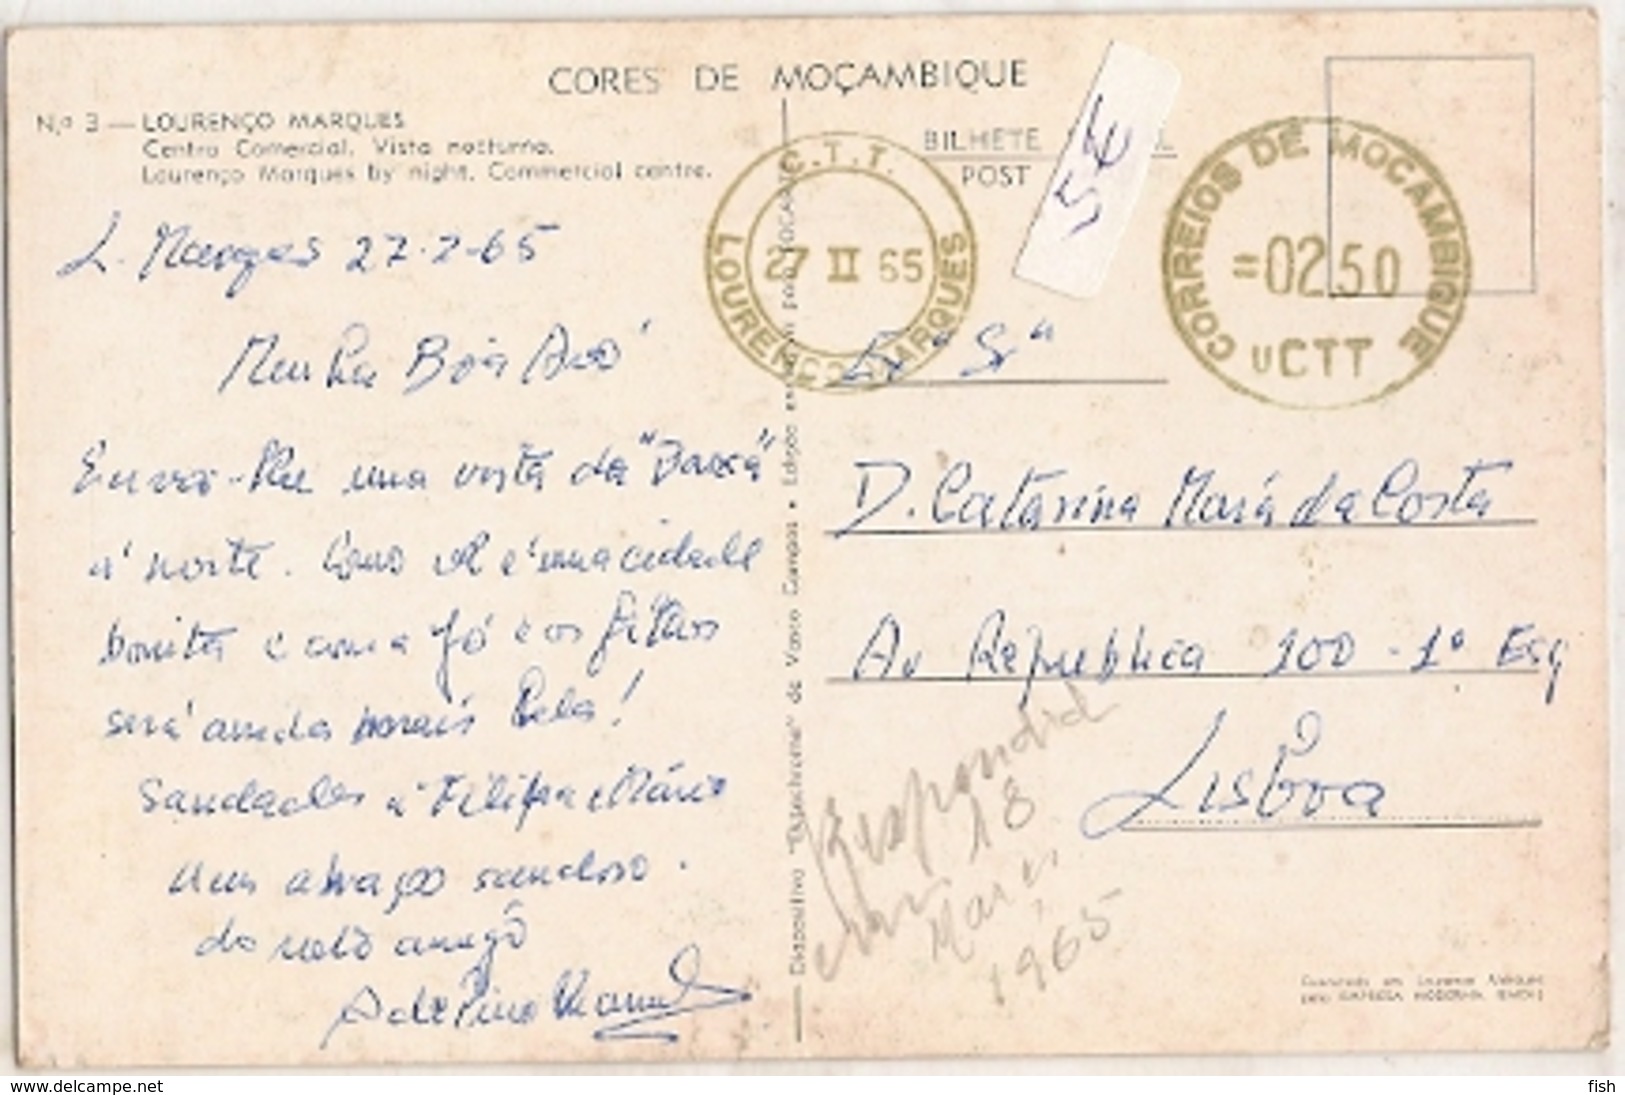 CORES DE MOÇAMBIQUE
N.º 3 — LOURENÇO MARQUES
Centro Comercial. Vista nocturna.
Lourenço Marques by night. Commercial centre.
L. Marques 27-2-65
Minha Boa Avó
Envio-lhe uma vista da "Baixa"
à noite. Como vê é uma cidade
bonita e com a Jó e os filhos
será ainda mais bela!
Saudades à Filipa e Mário
Um abraço saudoso.
do neto amigo
Adelino
Diapositivo "Agfachrome" de Vasco Campos • Edição em
C.T.T.
27 II 65
LOURENÇO MARQUES
BILHETE
POST
5€
CORREIOS DE MOÇAMBIQUE
=02.50
CTT
Exª Srª
D. Catarina Maria da Costa
Av República 100-1º Esq
Lisboa
Respondid
18
Março
1965
Executado em Lourenço Marques
pela EMPRESA MODERNA
www.delcampe.net
fish